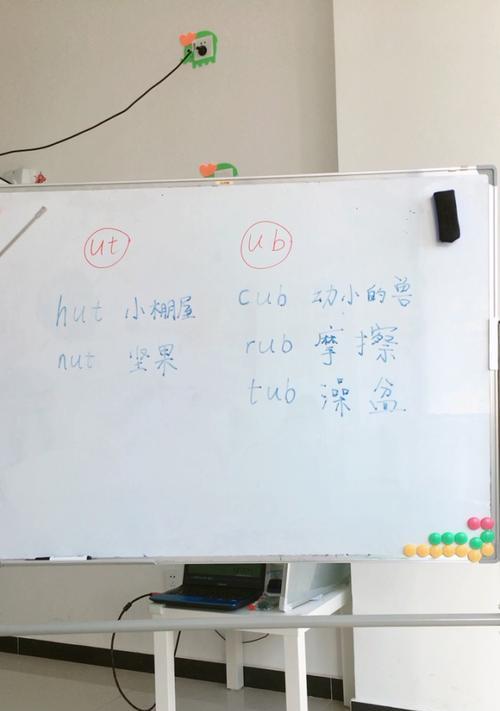 ut
hut 小棚屋
nut 坚果
ub
cub 幼小的兽
rub 摩擦
tub 澡盆